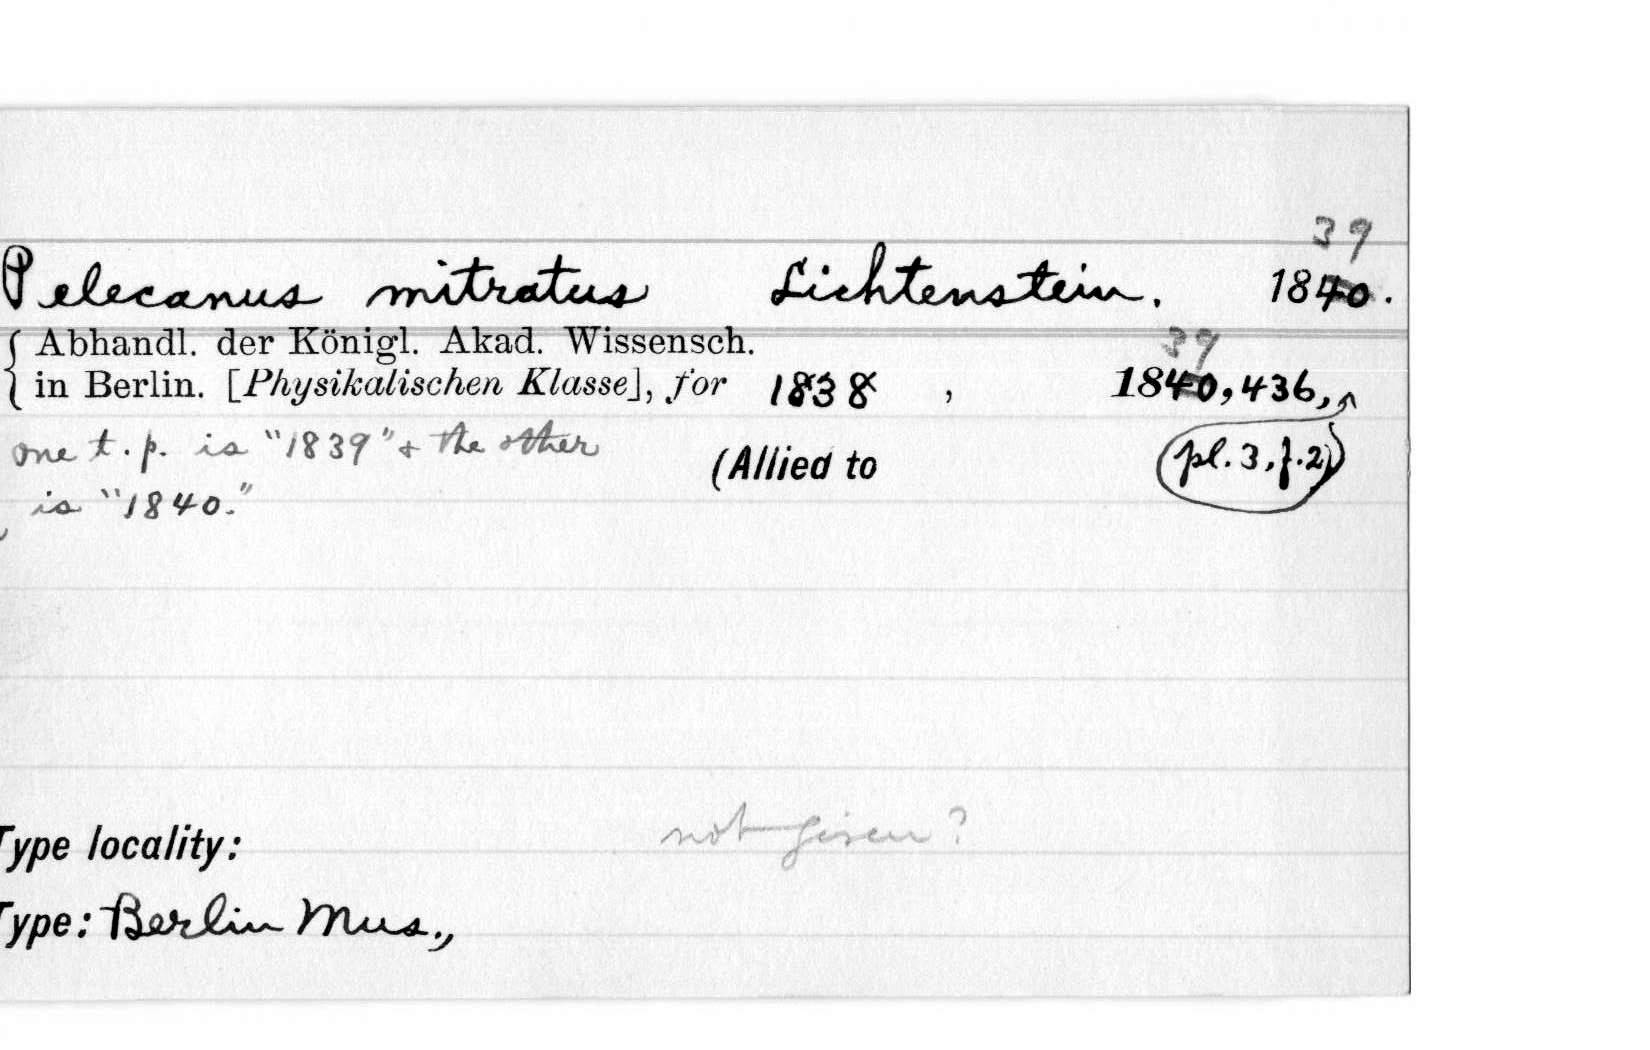 39
Pelecanus mitratus Lichtenstein. 1840.
Abhandl. der Königl. Akad. Wissensch. 39
in Berlin. [Physikalischen Klasse], for 1838, 1840, 436,
one t.p. is "1839" & the other (Allied to pl. 3, f. 2)
is "1840."
Type locality: not given?
Type: Berlin Mus.,